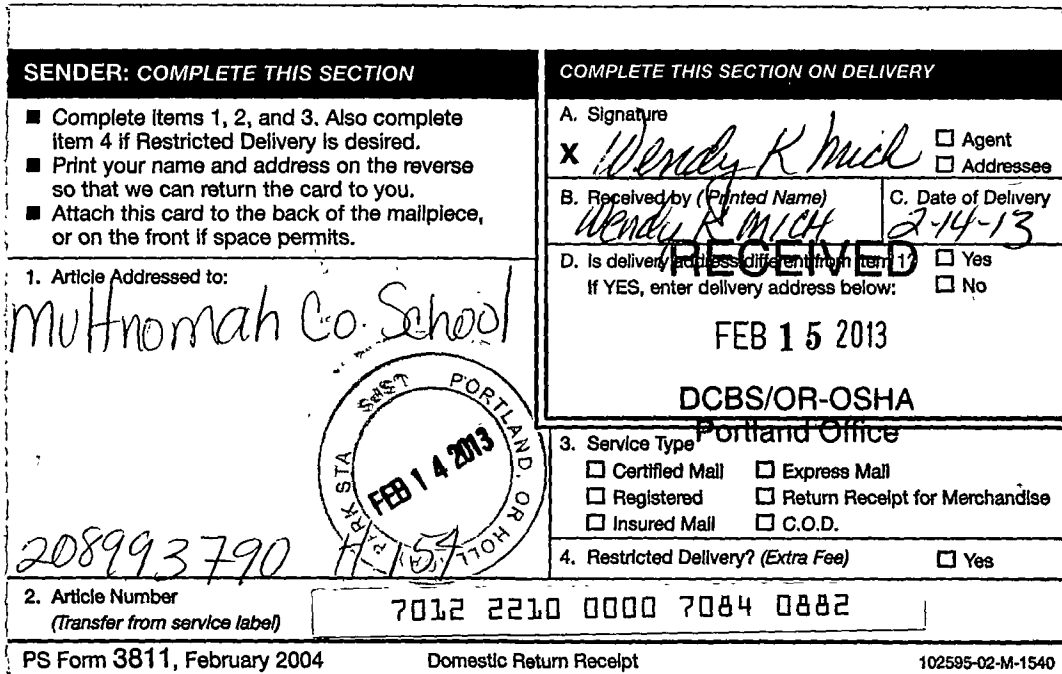 SENDER: COMPLETE THIS SECTION
■ Complete items 1, 2, and 3. Also complete
item 4 if Restricted Delivery is desired.
■ Print your name and address on the reverse
so that we can return the card to you.
■ Attach this card to the back of the mailpiece,
or on the front if space permits.
1. Article Addressed to:
Multnomah Co. School
PORTLAND, OR HOLL
PARK STA
USPS
FEB 14 2013
208993790
2. Article Number
(Transfer from service label)
7012 2210 0000 7084 0882
COMPLETE THIS SECTION ON DELIVERY
A. Signature
X Wendy K Mich
☐ Agent
☐ Addressee
B. Received by (Printed Name)
Wendy K MICH
C. Date of Delivery
2-14-13
D. Is delivery address different from item 1? ☐ Yes
If YES, enter delivery address below: ☐ No
RECEIVED
FEB 15 2013
DCBS/OR-OSHA
Portland Office
3. Service Type
☐ Certified Mail ☐ Express Mail
☐ Registered ☐ Return Receipt for Merchandise
☐ Insured Mail ☐ C.O.D.
4. Restricted Delivery? (Extra Fee) ☐ Yes
PS Form 3811, February 2004 Domestic Return Receipt 102595-02-M-1540